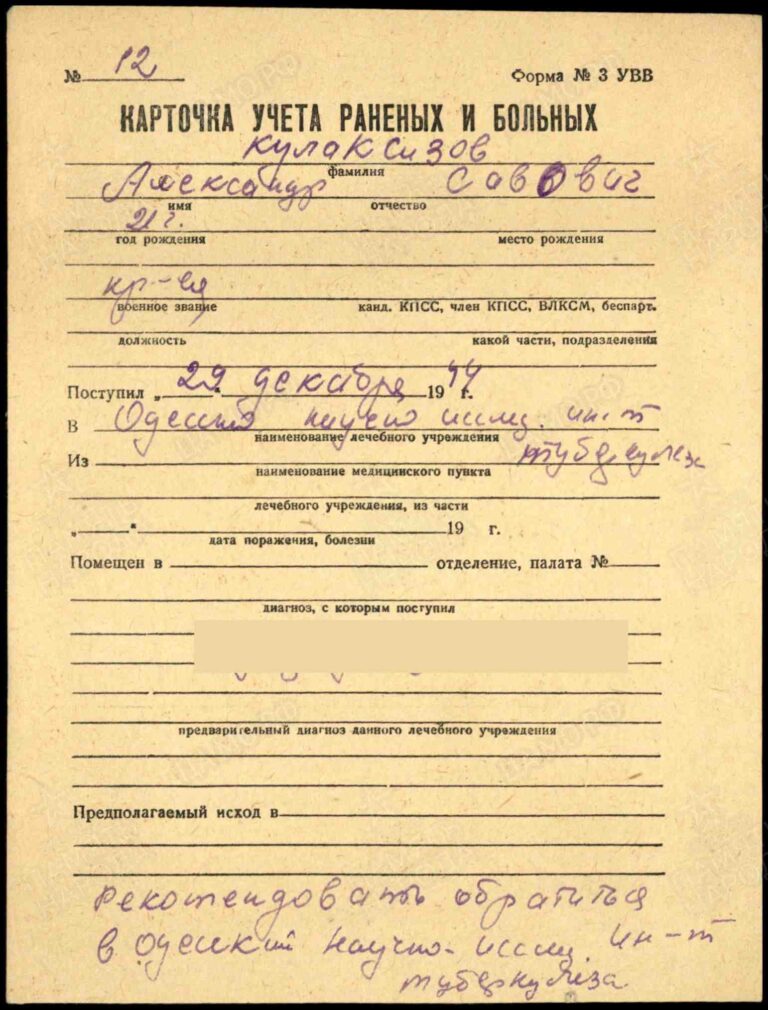 № 12 Форма № 3 УВВ
КАРТОЧКА УЧЕТА РАНЕНЫХ И БОЛЬНЫХ
Кулаксизов
фамилия
Александр Саввович
имя отчество
21 г.
год рождения место рождения
кр-ец
военное звание канд. КПСС, член КПСС, ВЛКСМ, беспарт.
должность какой части, подразделения
Поступил „29“ декабря 1944 г.
В Одесский научно исслед. ин-т
наименование лечебного учреждения
туберкулеза
Из
наименование медицинского пункта
лечебного учреждения, из части
„ “ 19 г.
дата поражения, болезни
Помещен в отделение, палата №
диагноз, с которым поступил
предварительный диагноз данного лечебного учреждения
Предполагаемый исход в
Рекомендовать обратиться
в Одесский научно-исслед. ин-т
туберкулеза